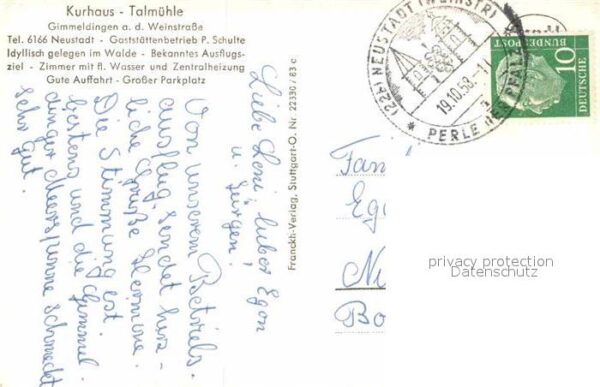 Kurhaus - Talmühle
Gimmeldingen a. d. Weinstraße
Tel. 6166 Neustadt - Gaststättenbetrieb P. Schulte
Idyllisch gelegen im Walde - Bekanntes Ausflugs-
ziel - Zimmer mit fl. Wasser und Zentralheizung
Gute Auffahrt - Großer Parkplatz
Liebe Leni, lieber Egon
u. Jürgen!
Von unserem Betriebs-
ausflug sendet herz-
liche Grüße Hermine.
Die Stimmung ist
bestens und die Gimmel-
dinger Meerspinne schmeckt
sehr gut.
Franckh-Verlag, Stuttgart-O. Nr. 22330 / 83 c
(22b) NEUSTADT (WEINSTR)
19.10.58.-11
* PERLE DER PFALZ
10
DEUTSCHE
BUNDESPOST
Fam
Eg
N
Bo
privacy protection
Datenschutz